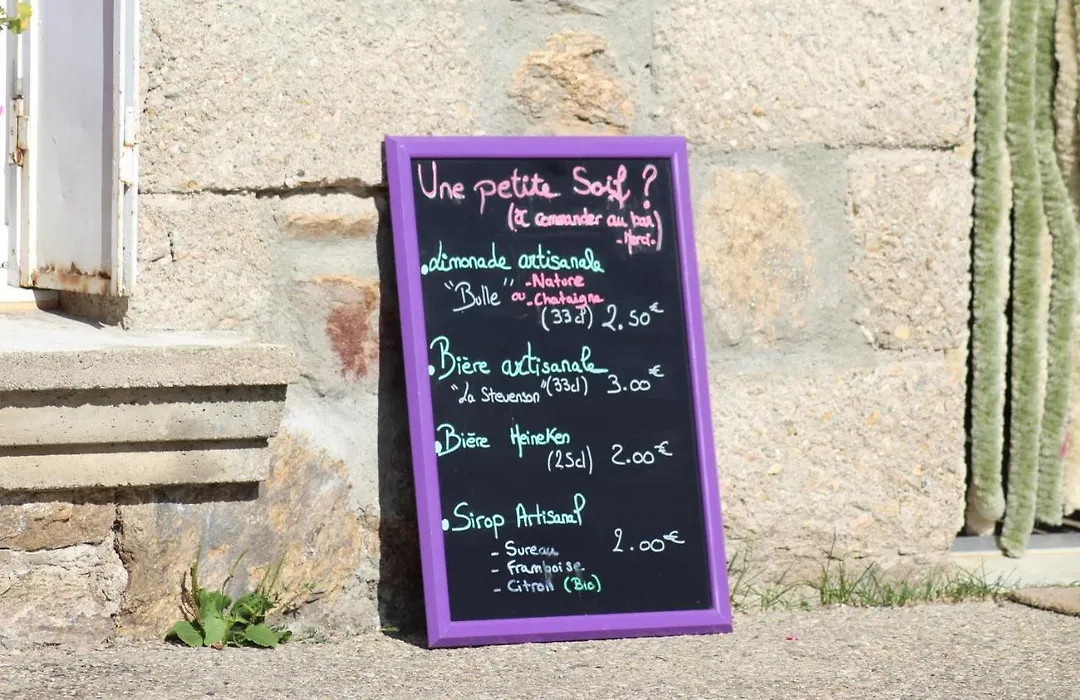 Une petite Soif ?
(à commander au bar
-Merci-)
• Limonade artisanale
"Bulle" ou -Nature
-Chataigne
(33cl) 2.50€
• Bière artisanale
"La Stevenson" (33cl) 3.00€
• Bière HeineKen
(25cl) 2.00€
• Sirop Artisanal
2.00€
- Sureau
- Framboise
- Citron (Bio)